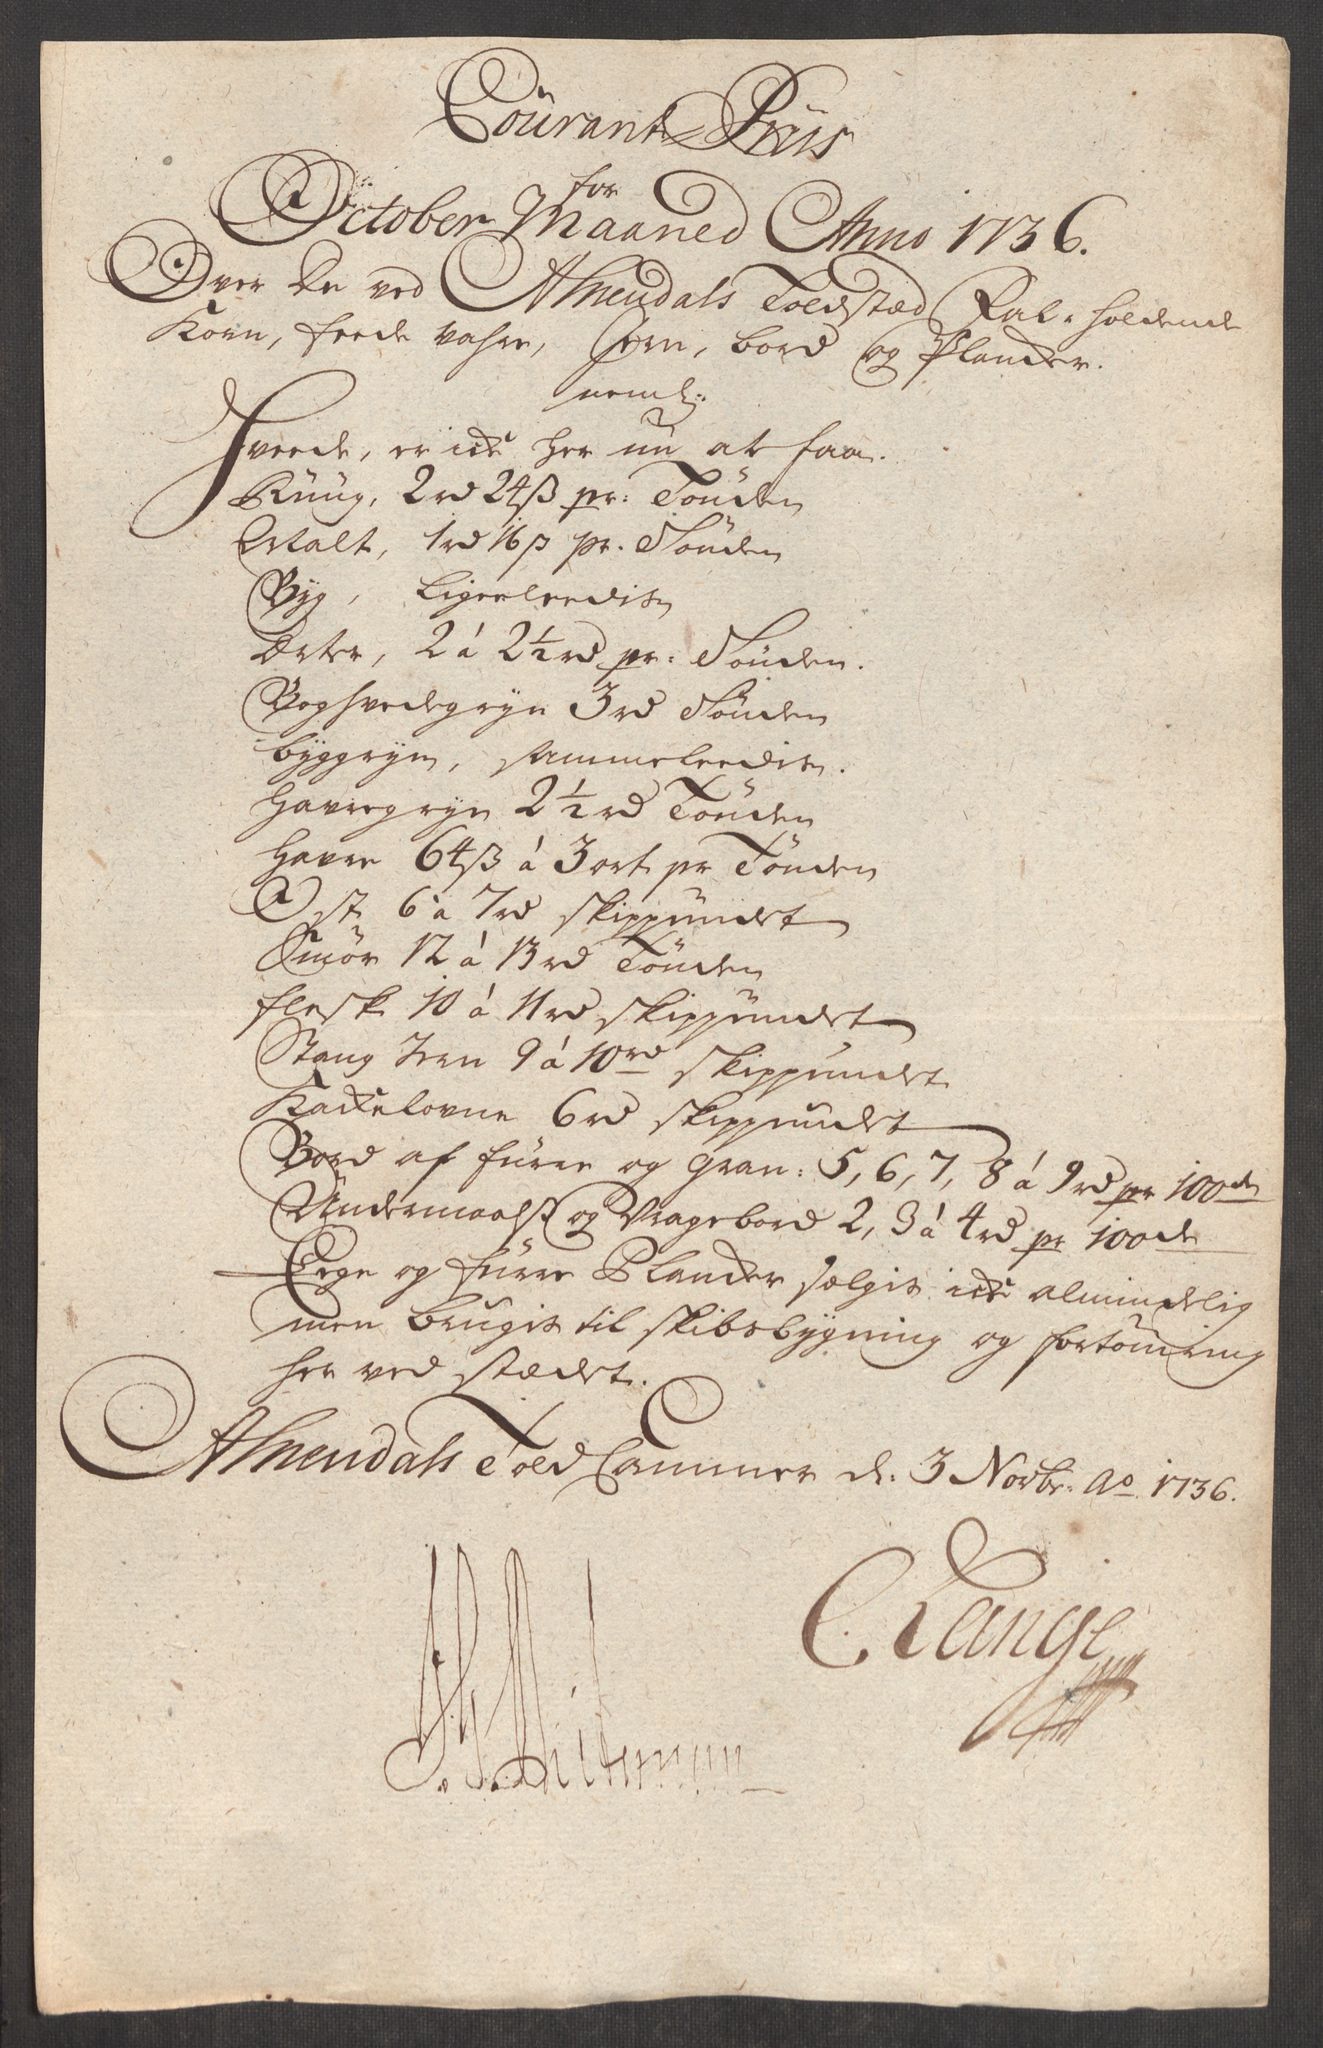 Courant Priis
for
October Maaned Anno 1736.
Over De ved Arrendals Toldstæd Fal-holdende
Korn, feede vahre, Jern, bord og Plancker.
neml:
Hveede, er icke her nu at faa.
Ruug, 2 rd 24 ß pr: Tönden
Malt, 1 rd 16 ß pr. Tönden
Byg, Ligeleedis
Erter, 2 á 2½ rd pr: Tönden.
Boghvedegryn 3 rd Tönden
byggryn, sammeleedis.
Havregryn 2½ rd Tönden
Havre 64 ß á 3 ort pr Tönden
Ost 6 a 7 rd skippundet
Smör 12 á 13 rd Tönden
flesk 10 á 11 rd skippundet
Stang Jern 9 á 10 rd skippundet
Kackelovne 6 rd skippundet
Bord af furre og gran: 5, 6, 7, 8 á 9 rd pr 100de
Undermaals og Vragebord 2, 3 á 4 rd pr 100de
Eege og furre Plancker sælgis icke almindelig
men brugis til skibsbygning og fortömring
her ved stædet.
Arrendals Told Cammer d. 3 Novbr: Ao 1736.
C Lange